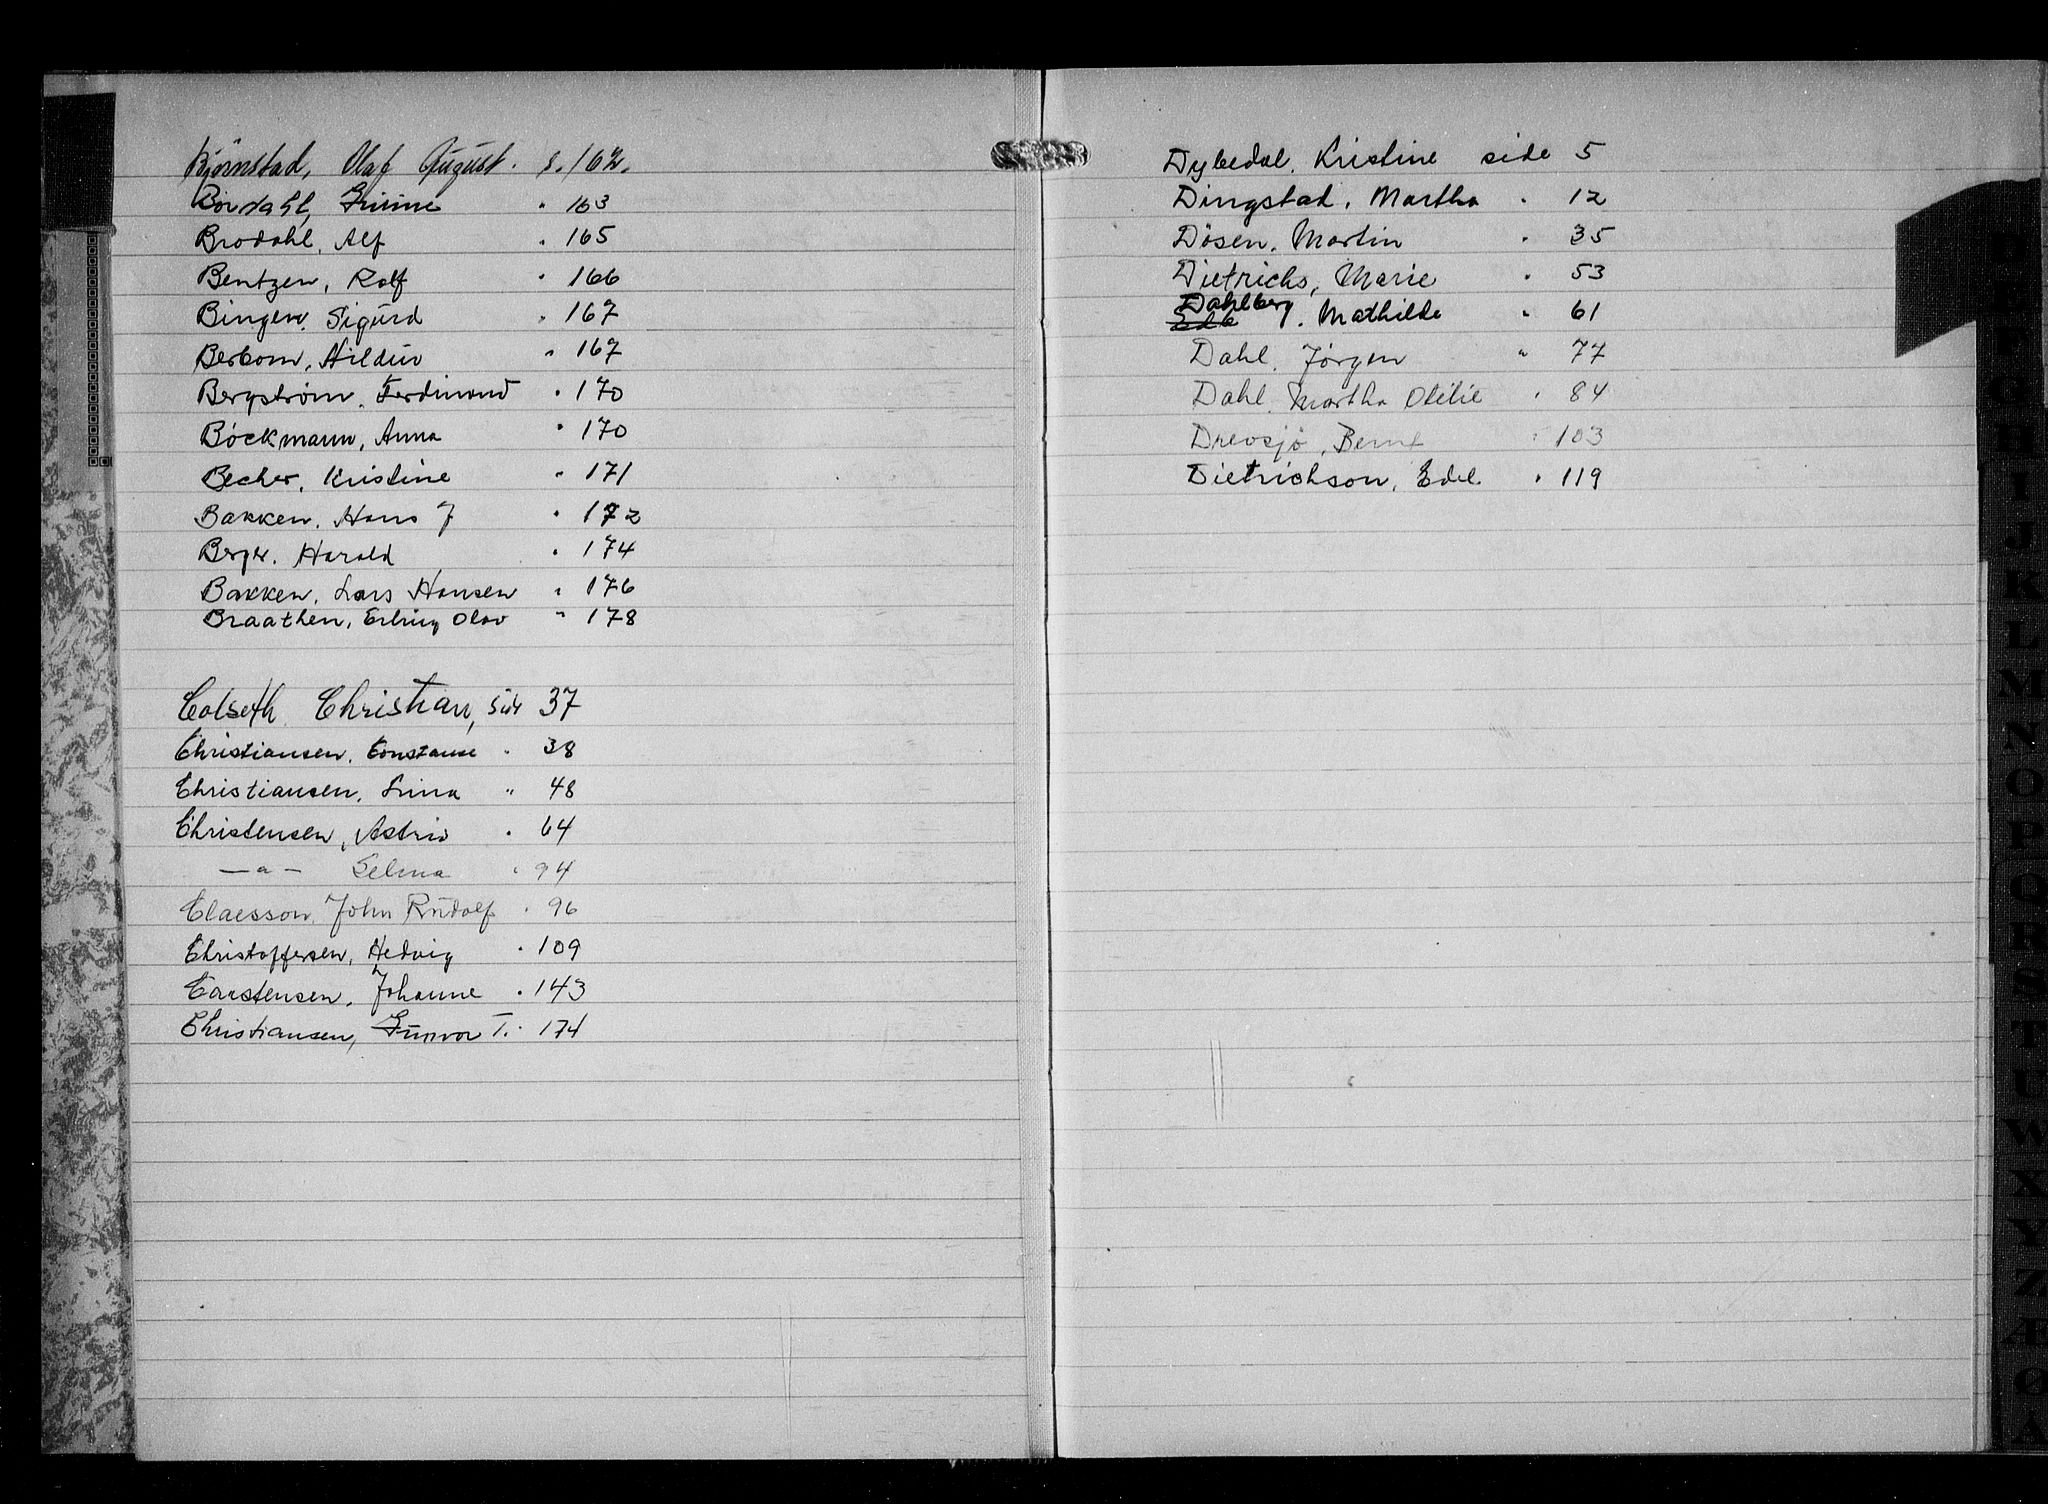 Bjørnstad, Olaf August. s. 162.
Bordahl, Gurine " 163
Brodahl, Alf " 165
Bentzen, Rolf " 166
Bingen, Sigurd " 167
Berbom, Hildur " 167
Bergstrøm, Ferdinand " 170
Böckmann, Anna " 170
Becher, Kristine " 171
Bakken, Hans J " 172
Berger, Harald " 174
Bakken, Lars Hansen " 176
Braathen, Erling Olav " 178
Colseth Christian, side 37
Christiansen, Constanse " 38
Christiansen, Lina " 48
Christensen, Astrid " 64
—"— Selma " 94
Claesson, John Rudolf " 96
Christoffersen, Hedvig " 109
Carstensen, Johanne " 143
Christiansen, Gunvor T. " 174
Dybedal, Kristine side 5
Dingstad, Martha " 12
Døsen, Martin " 35
Dietrichs, Marie " 53
Dahlberg, Mathilde " 61
Dahl, Jørgen " 77
Dahl, Martha Otilie " 84
Drevsjø, Bernt " 103
Dietrichson, Edel " 119
I
J
K
L
M
N
O
P
Q
R
S
T
U
W
X
Y
Z
Æ
Ø
A